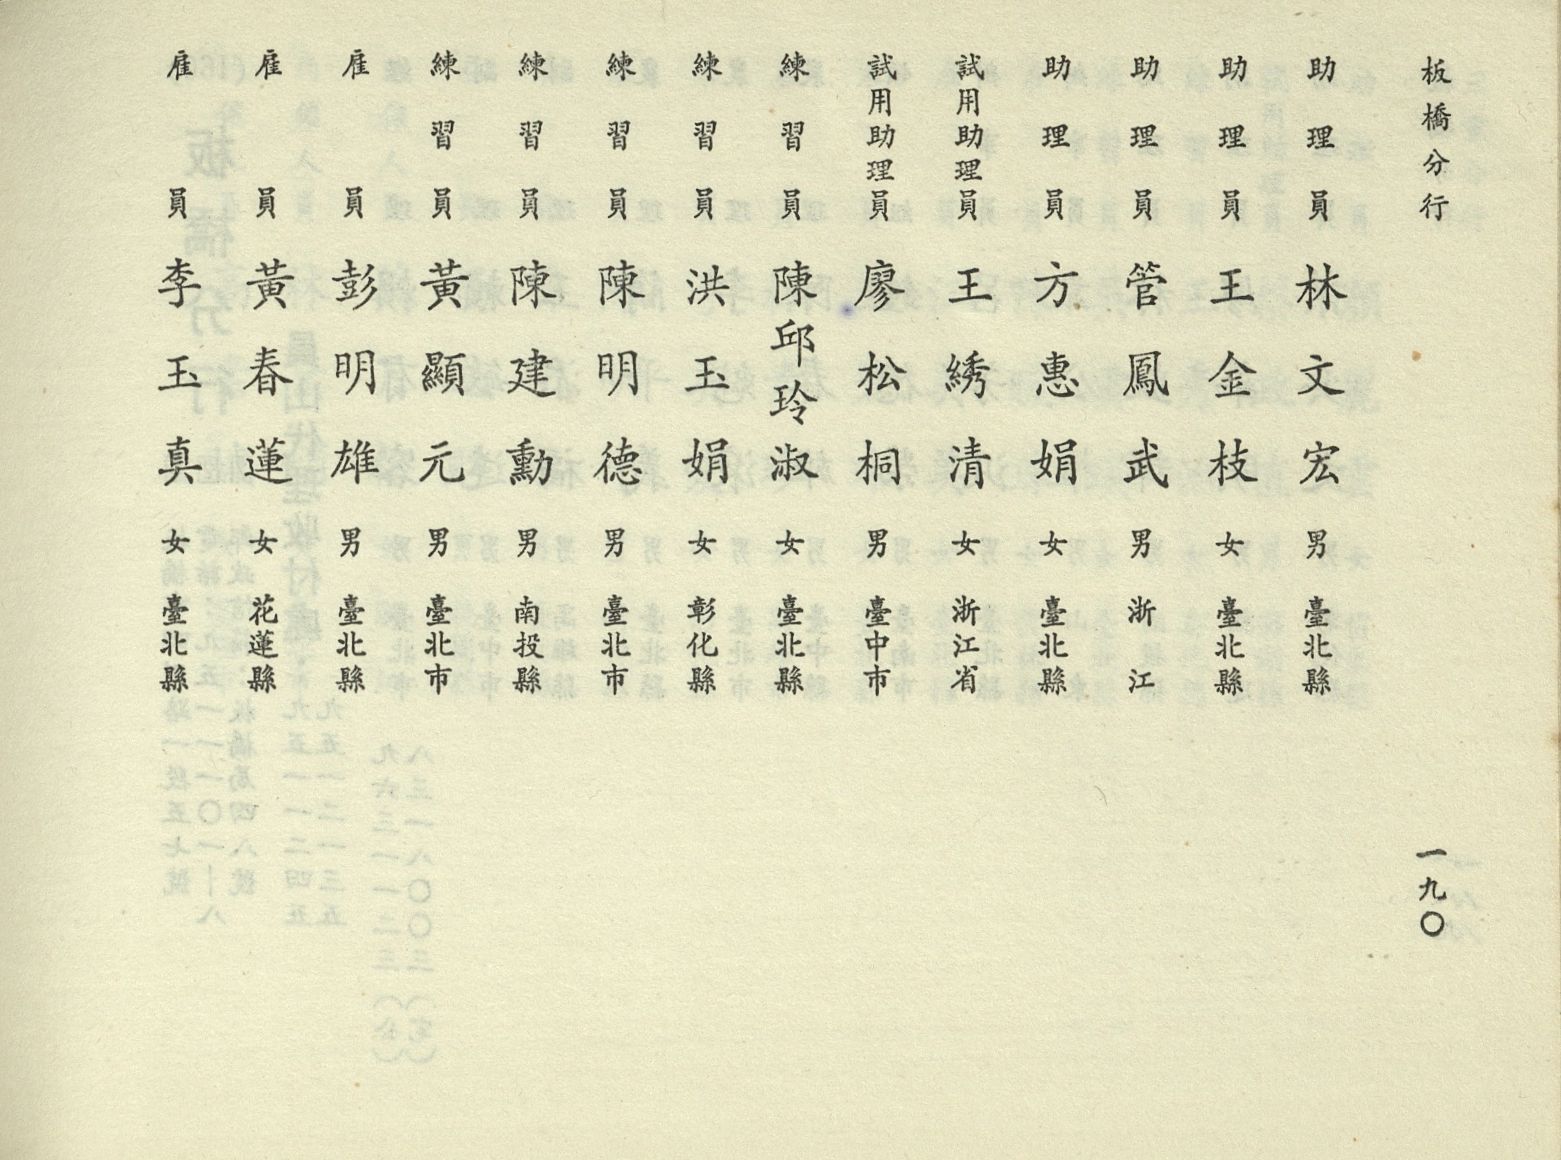 板橋分行
一九〇
助理員 林文宏 男 臺北縣
助理員 王金枝 女 臺北縣
助理員 管鳳武 男 浙江
助理員 方惠娟 女 臺北縣
試用助理員 王綉清 女 浙江省
試用助理員 廖松桐 男 臺中市
練習員 陳邱玲淑 女 臺北縣
練習員 洪玉娟 女 彰化縣
練習員 陳明德 男 臺北市
練習員 陳建勳 男 南投縣
練習員 黃顯元 男 臺北市
雇員 彭明雄 男 臺北縣
雇員 黃春蓮 女 花蓮縣
雇員 李玉真 女 臺北縣